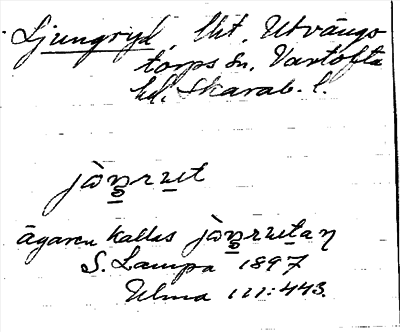 Ljungryd, lht, Utvängs-
torps sn. Vartofta
hd. Skarab. l.
jòn̠rut
ägaren kallas jòn̠rutan
S. Lampa 1897
Ulma 111:443.